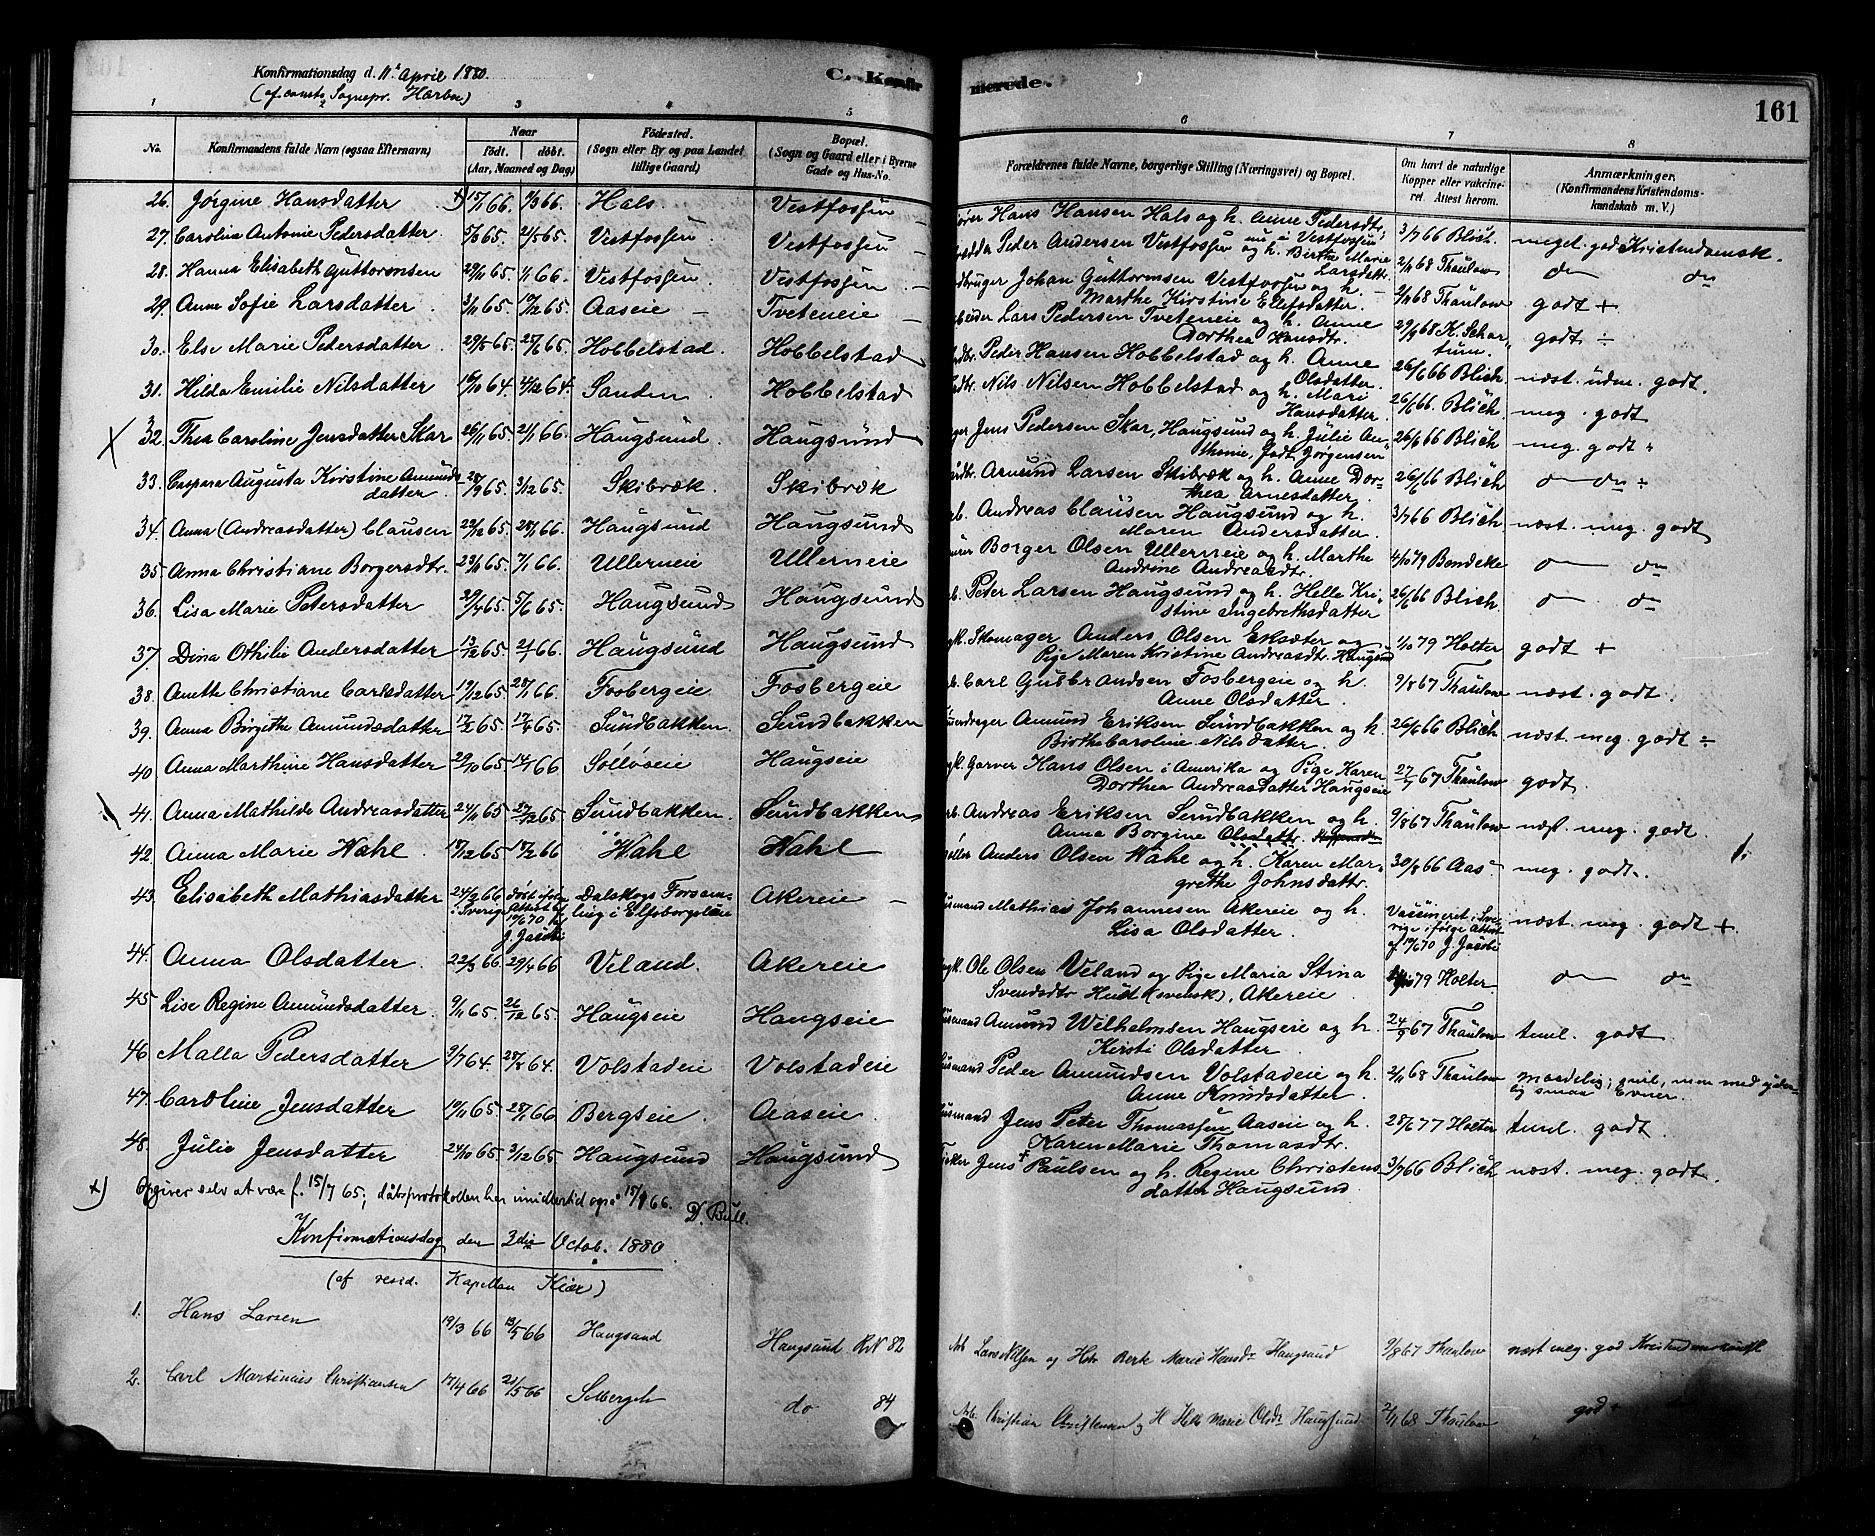 Konfirmationsdag d. 11te April 1880.
C. Konfir merede.
(af const. Sognepr. Harboe)
161
1 2 3 4 5 6 7 8
No. Konfirmandens fulde Navn (ogsaa Efternavn) Naar födt. döbt. (Aar, Maaned og Dag) Födested. (Sogn eller By og paa Landet tillige Gaard) Bopæl. (Sogn og Gaard eller i Byerne Gade og Hus-No. Forældrenes fulde Navne, borgerlige Stilling (Næringsvei) og Bopæl. Om havt de naturlige Kopper eller vakcineret. Attest herom. Anmærkninger. (Konfirmandens Kristendomskundskab m. V.)
26. Jørgine Hansdatter x) 15/7 66. 9/3 66. Hals. Vestfossen Hans Hansen Hals og h. Anne Pedersdtr. nu i Vestfossen 3/7 66 Blich. meget god Kristendomsk.
27. Carolin Antonie Pedersdatter 5/3 65. 2/5 65. Vestfossen. Vestfossen Peder Andersen Vestfossen og h. Birthe Marie Larsdatter 2/11 68 Thaulow do do
28. Hanna Elisabeth Guttormsen 29/11 65. 1/1 66. Vestfossen. Vestfossen Johan Guttormsen Vestfossen og h. Marthe Kirstine Ellefsdatter. 9/11 68 Thaulow godt +
29. Anne Sofie Larsdatter 3/11 65. 19/12 65. Aaseie Tveteneie Lars Pedersen Tveteneie og h. Anne Dorthea Hansdtr. 29/9 68 K. Schartum. godt ÷
30. Else Marie Pedersdatter 29/5 65. 25/6 65. Hobbelstad. Hobbelstad Peder Hansen Hobbelstad og h. Anne Olsdatter. 26/6 66 Blich næst. udm. godt.
31. Hilda Emilie Nilsdatter 16/10 64. 4/12 64. Sanden. Hobbelstad Nils Nilsen Hobbelstad og h. Mari Hansdatter. 26/6 66. Blich meg. godt
32. Thea Caroline Jensdatter Skar 26/11 65. 21/1 66. Haugsund. Haugsund Jens Pedersen Skar, Haugsund og h. Julie Anthonie, født Jørgensen 26/6 66 Blich meg. godt
33. Caspara Augusta Kirstine Amundsdatter 28/9 65. 3/12 65. Skibræk. Skibræk Amund Larsen Skibræk og h. Anne Dorthea Arnesdatter. 26/6 66 Blich do do ÷
34. Anna (Andreasdatter) Clausen 29/12 65. 28/1 66. Haugsund Haugsund Andreas Clausen Haugsund og h. Maren Andersdatter. 3/7 66 Blich næst. meg. godt
35. Anna Christiane Borgersdtr. 23/11 65. 7/1 66. Ullerneie Ullerneie Borger Olsen Ullerneie og h. Marthe Andrine Andreasdtr. 4/10 79 Bondekke do do
36. Lisa Marie Petersdatter 29/4 65. 5/6 65. Haugsund Haugsund Peter Larsen Haugsund og h. Helle Kristine Ingebrethsdatter 26/6 66 Blich. do do
37 Dina Othilie Andersdatter 13/12 65. 2/1 66. Haugsund Haugsund Ungk. Skomager Anders Olsen Eksæter og Pige Maren Kristine Andreasdt. Haugsund 1/10 79 Holter godt +
38. Anette Christiane Carlsdatter 19/12 65. 28/1 66. Fosbergeie Fosbergeie Carl Gulbrandsen Fosbergeie og h. Anne Olsdatter. 9/8 67 Thaulow næst. godt.
39. Anna Birgithe Amundsdatter 12/2 65. 17/4 65. Sundbakken Sundbakken Amund Eriksen Sundbakken og h. Birthe Caroline Nilsdatter. 26/6 66 Blich næst. meg. godt ÷
40 Anna Marthine Hansdatter 22/10 65. 14/1 66 Sølløseie Haugseie Garver Hans Olsen i Amerika og Pige Karen Dorthea Andreasdatter Haugseie 27/7 67 Thaulow godt.
41. Anna Mathilde Andreasdatter 24/11 65. 27/12 65 Sundbakken. Sundbakken Andreas Eriksen Sundbakken og h. Anna Borgine Olsdatt. 9/8 67 Thaulow næst. meg. godt.
42. Anna Marie Wahl. 17/12 65. 18/2 66 Wahl Wahl Anders Olsen Wahl og h. Karen Margrethe Johnsdatter. 30/8 66 Aas meg. godt.
43. Elisabeth Mathiasdatter 24/2 66 i Sverig Døbt ifølge Attest af 19/6 70 af J. Jacobi Dalskogs Forsamling i Elfsborgslän Akereie Husmand Mathias Johannesen Akereie og h. Lisa Olsdatter. Vaccineret i Sverige ifølge Attest af 19/6 70 J. Jacobi næst. meg. godt +.
44. Anna Olsdatter. 22/3 66 29/4 66 Veland. Akereie Ole Olsen Veland og Pige Maria Stina Svendsdtr Hult (svensk), Akereie 79 Holter. do do
45 Lise Regine Amundsdatter. 9/11 65. 26/12 65. Haugseie Haugseie Husmand Amund Wilhelmsen Haugseie og h. Kirsti Olsdatter 24/9 67 Thaulow teml. godt
46 Malla Pedersdatter 3/7 64. 28/8 64. Volstadeie Volstadeie Husmand Peder Amundsen Volstadeie og h. Anne Knudsdatter. 2/11 68 Thaulow men med og smaa Evner.
47. Caroline Jensdatter 19/11 65. 28/1 66 Bergseie. Aaseie Husmand Jens Peter Thomassen Aaseie og h. Karen Marie Thomasdtr. 28/6 77 Holter teml. godt.
48. Julie Jensdatter 24/10 65. 3/12 65 Haugsund Haugsund Jens Paulsen og h. Regine Christensdatter Haugsund 3/7 66 Blich næst. meg. godt.
x) Opgiver selv at være f. 15/7 65; dåbsprotokollen her imidlertid også 15/7 66. D. Bull.
Konfirmationsdag den 3die Octob. 1880
(af resid. Kapellan Kiær)
1. Hans Larsen 19/3 66 13/5 66 Haugsund Haugsund RN 82 Arb Lars Nilsen og Hstr Berte Marie Hansd. Haugsund 9/8 67 Thaulow næst meg. god Kristendomskundsk
2. Carl Martinius Christiansen 17/4 66 21/5 66 Solbergelv do 84 Arb. Christian Christensen og H Helle Marie Olsdr Haugsund 2/11 68 Thaulow god +